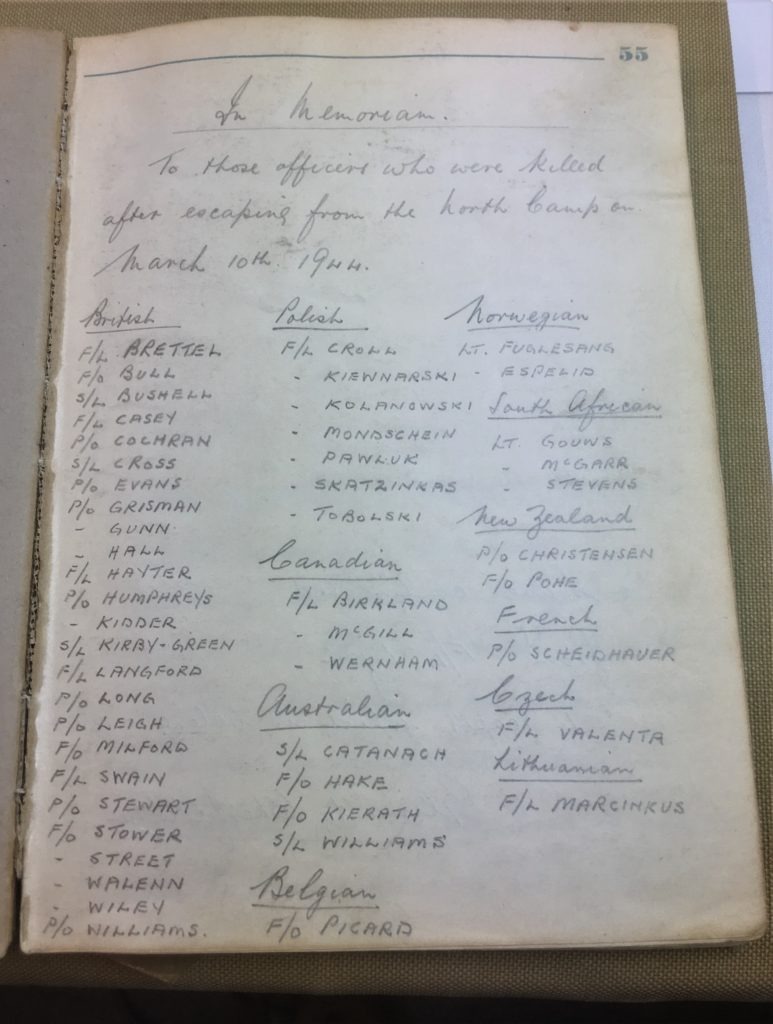 55
In Memoriam.
To those officers who were killed
after escaping from the North Camp on
March 10th. 1944.
British
F/L BRETTEL
F/O BULL
S/L BUSHELL
F/L CASEY
P/O COCHRAN
S/L CROSS
P/O EVANS
P/O GRISMAN
- GUNN
- HALL
F/L HAYTER
P/O HUMPHREYS
- KIDDER
S/L KIRBY-GREEN
F/L LANGFORD
P/O LONG
P/O LEIGH
F/O MILFORD
F/L SWAIN
P/O STEWART
F/O STOWER
- STREET
- WALENN
- WILEY
P/O WILLIAMS.
Polish
F/L CROLL
- KIEWNARSKI
- KOLANOWSKI
- MONDSCHEIN
- PAWLUK
- SKATZINKAS
- TOBOLSKI
Canadian
F/L BIRKLAND
- McGILL
- WERNHAM
Australian
S/L CATANACH
F/O HAKE
F/O KIERATH
S/L WILLIAMS
Belgian
F/O PICARD
Norwegian
LT. FUGLESANG
- ESPELID
South African
LT. GOUWS
- McGARR
- STEVENS
New Zealand
P/O CHRISTENSEN
F/O POHE
French
P/O SCHEIDHAUER
Czech
F/L VALENTA
Lithuanian
F/L MARCINKUS